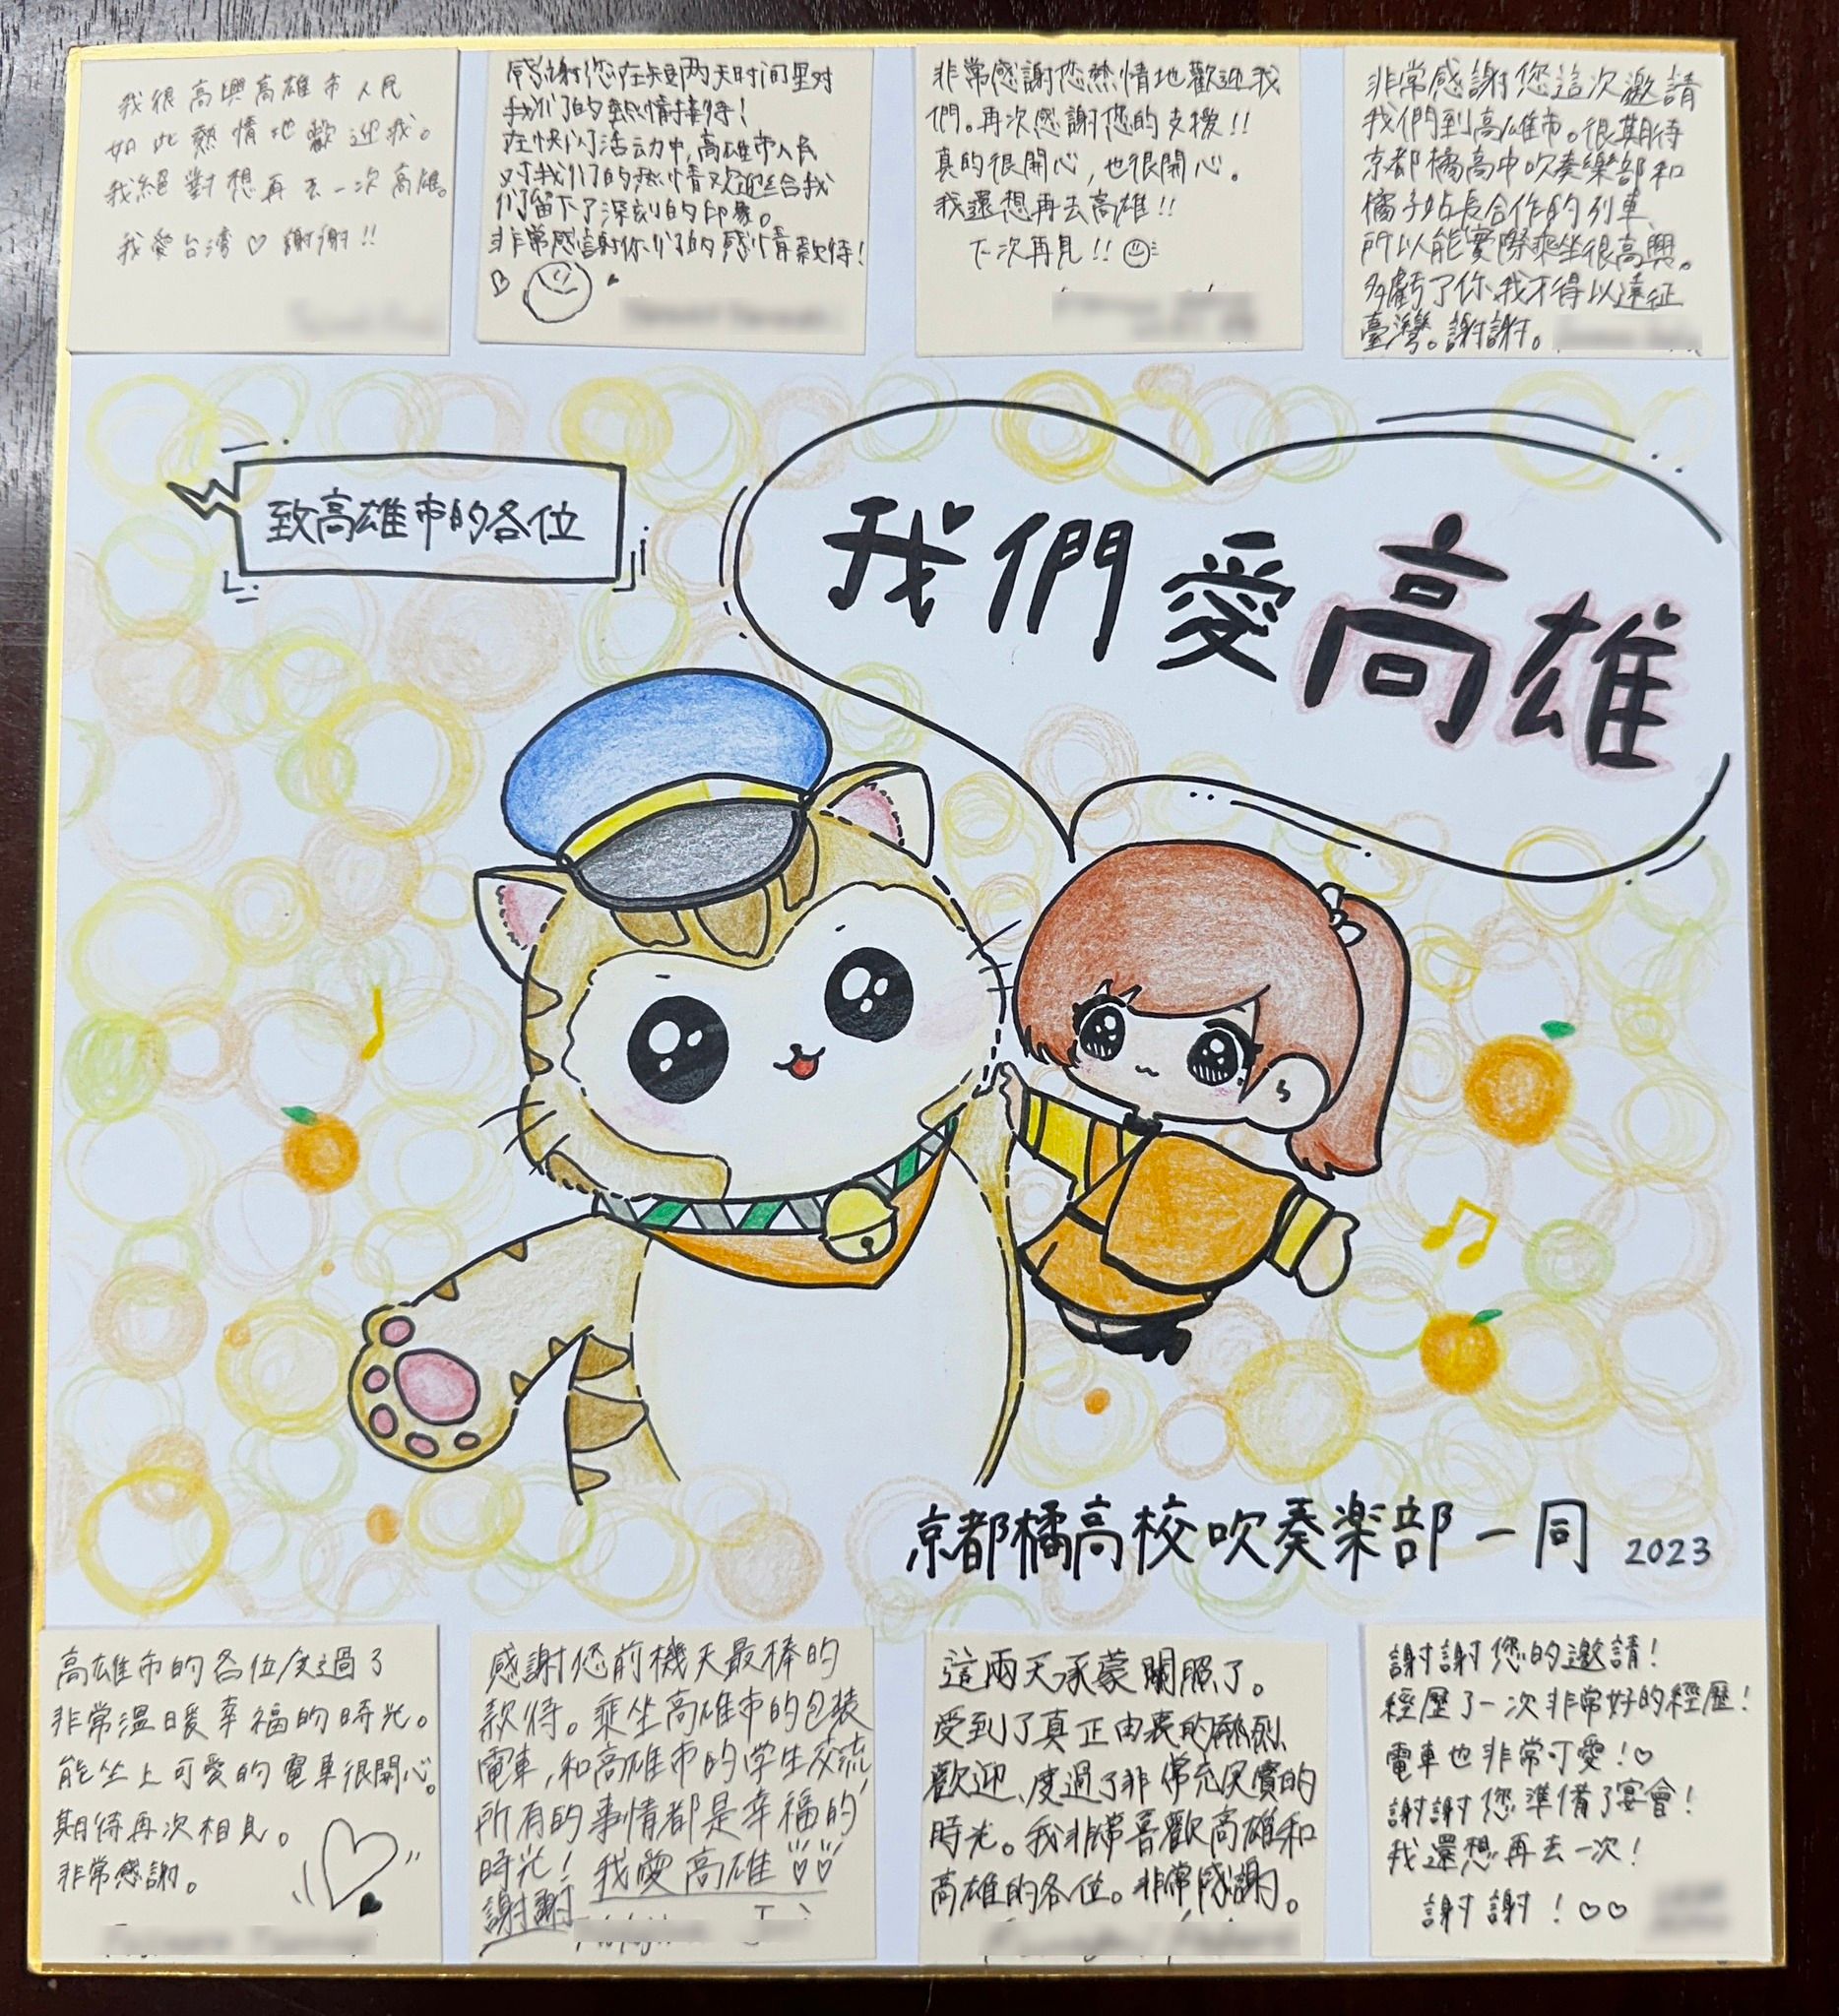 我很高興高雄市人民
如此熱情地歡迎我。
我絕對想再去一次高雄。
我愛台湾♡謝謝!!
感謝您在短暫两天时间里对
我们的熱情接待!
在快闪活动中,高雄市人民
对我们的热情欢迎给我
们留下了深刻的印象。
非常感謝你们的感情款待!
非常感謝您熱情地歡迎我
們。再次感謝您的支援!!
真的很開心,也很開心。
我還想再去高雄!!
下次再見!!
非常感謝您這次邀請
我們到高雄市。很期待
京都橘高中吹奏樂部和
橘子站長合作的列車、
所以能實際乘坐很高興。
多虧了你、我才得以遠征
臺灣。謝謝。
致高雄市的各位
我們愛高雄
京都橘高校吹奏楽部一同 2023
高雄市的各位度過了
非常溫暖幸福的時光。
能坐上可愛的電車很開心。
期待再次相見。
非常感謝。
感謝您前機天最棒的
款待。乘坐高雄市的包装
電車,和高雄市的学生交流
所有的事情都是幸福的
時光!我愛高雄♡♡
謝謝
這兩天承蒙關照了。
受到了真正由衷的熱烈
歡迎、度過了非常充実實的
時光。我非常喜歡高雄和
高雄的各位。非常感謝。
謝謝您的邀請!
經歷了一次非常好的經歷!
電車也非常可愛!♡
謝謝您準備了宴會!
我還想再去一次!
謝謝!♡♡